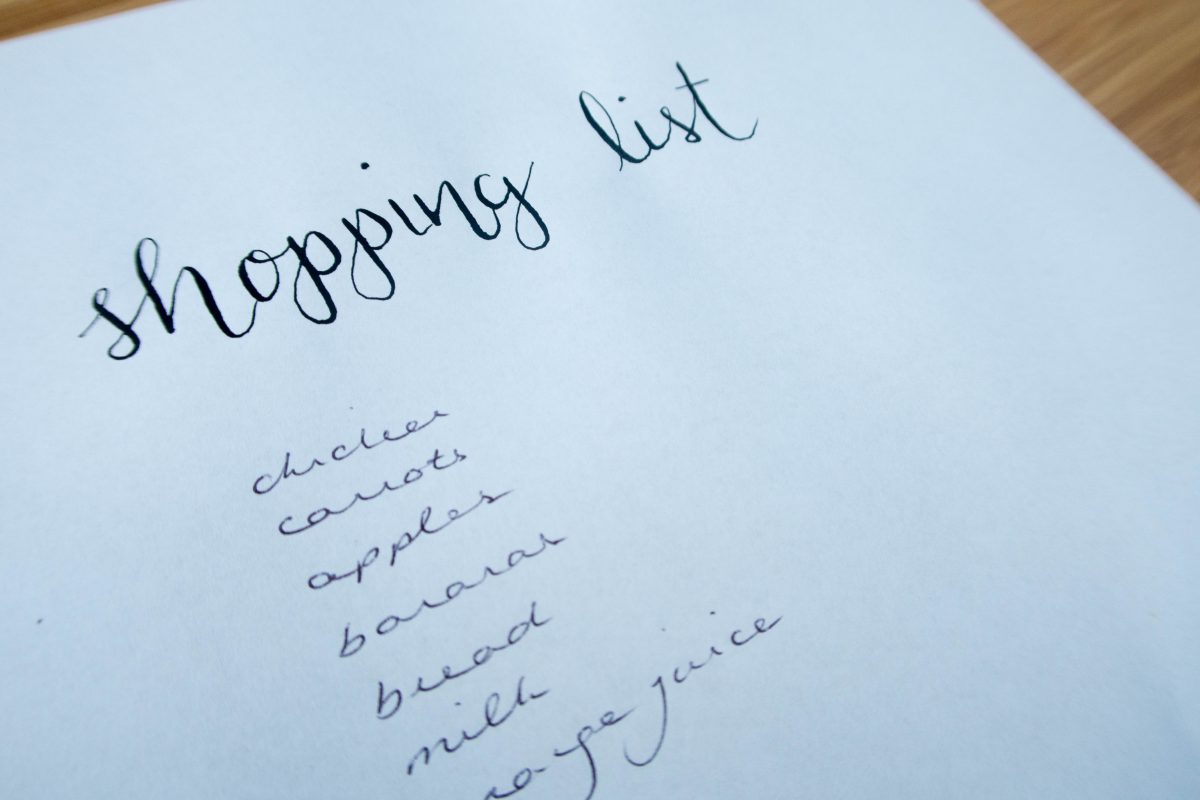 shopping list
chicken
carrots
apples
bananas
bread
milk
orange juice